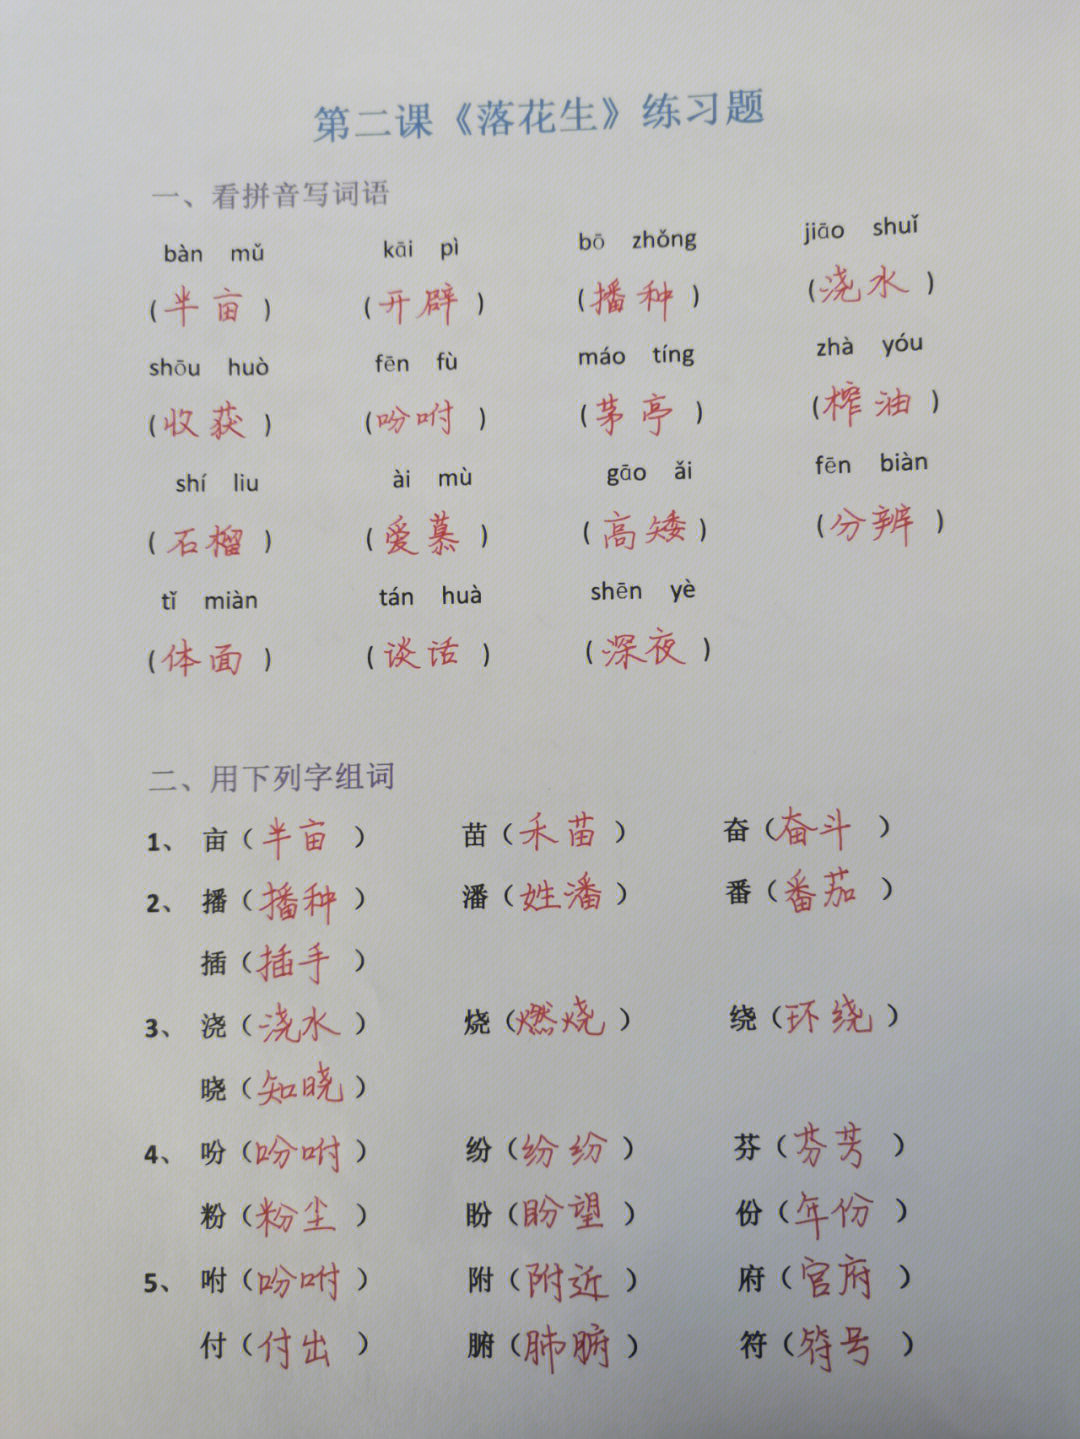 第二课《落花生》练习题
一、看拼音写词语
bàn mǔ kāi pì bō zhǒng jiāo shuǐ
(半亩) (开辟) (播种) (浇水)
shōu huò fēn fù máo tíng zhà yóu
(收获) (吩咐) (茅亭) (榨油)
shí liu ài mù gāo ǎi fēn biàn
(石榴) (爱慕) (高矮) (分辨)
tǐ miàn tán huà shēn yè
(体面) (谈话) (深夜)
二、用下列字组词
1、 亩（半亩） 苗（禾苗） 奋（奋斗）
2、 播（播种） 潘（姓潘） 番（番茄）
插（插手）
3、 浇（浇水） 烧（燃烧） 绕（环绕）
晓（知晓）
4、 吩（吩咐） 纷（纷纷） 芬（芬芳）
粉（粉尘） 盼（盼望） 份（年份）
5、 咐（吩咐） 附（附近） 府（官府）
付（付出） 腑（肺腑） 符（符号）